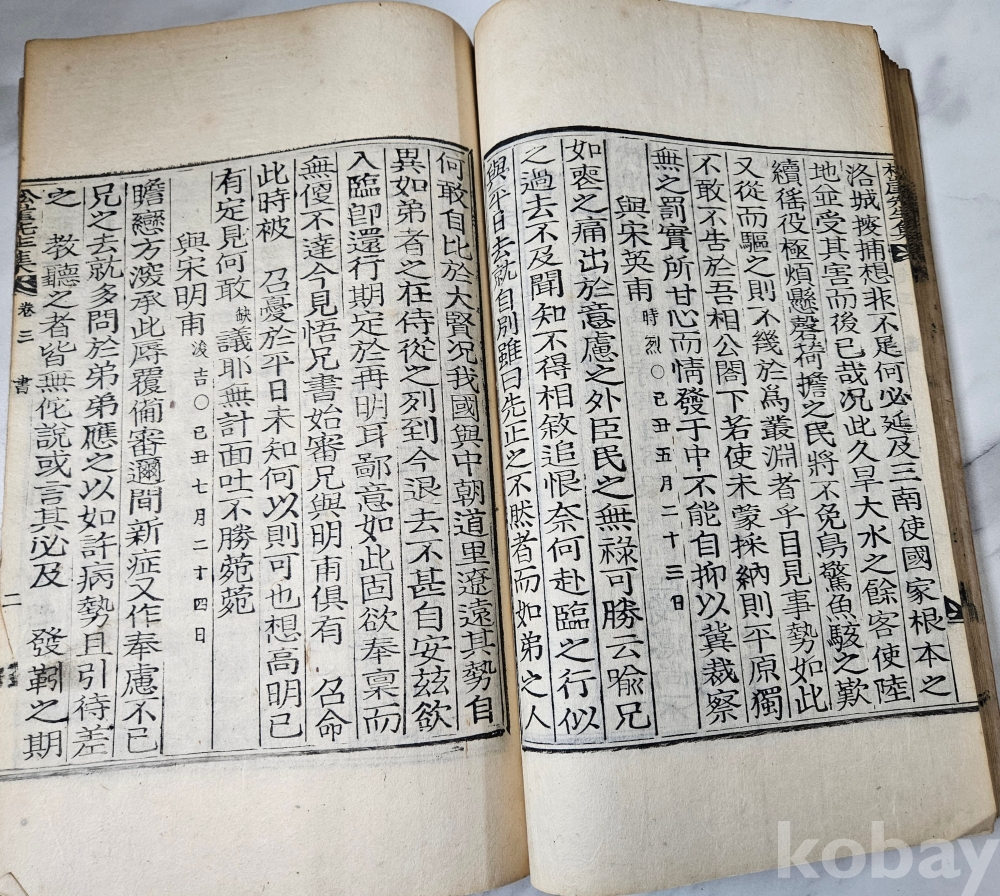 洛城搜捕想非不足何必延及三南使國家根本之
地並受其害而後已哉况此久旱大水之餘客使陸
續徭役極煩懸罄荷擔之民將不免鳥驚魚駭之歎
又從而驅之則不幾於爲叢淵者乎目見事勢如此
不敢不告於吾相公閤下若使未蒙採納則平原獨
無之罰實所甘心而情發于中不能自抑以冀裁察
與宋英甫 時烈○己丑五月二十三日
如喪之痛出於意慮之外臣民之無祿可勝云喩兄
之過去不及聞知不得相敘追恨奈何赴臨之行似
與平日去就自別雖曰先正之不然者而如弟之人
何敢自比於大賢况我國與中朝道里遼遠其勢自
異如弟者之在侍從之列到今退去不甚自安茲欲
入臨卽還行期定於再明耳鄙意如此固欲奉稟而
無便不達今見悟兄書始審兄與明甫俱有 召命
此時被 召憂於平日未知何以則可也想高明已
有定見何敢 缺 議耶無計面吐不勝菀菀
與宋明甫 浚吉○己丑七月二十四日
瞻戀方深承此辱覆備審邇間新症又作奉慮不已
兄之去就多問於弟弟應之以如許病勢且引待差
之 敎聽之者皆無佗說或言其必及 發靷之期
先生集 卷三 書 二
kobay